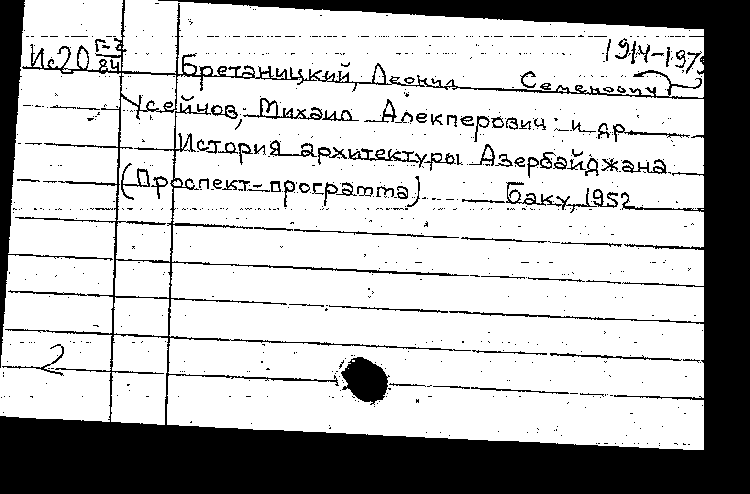 1914-1979
Ис20 Г-2/84 Бретаницкий, Леонид Семенович
Усейнов, Михаил Алекперович и др
История архитектуры Азербайджана
(Проспект-программа) Баку, 1952
2